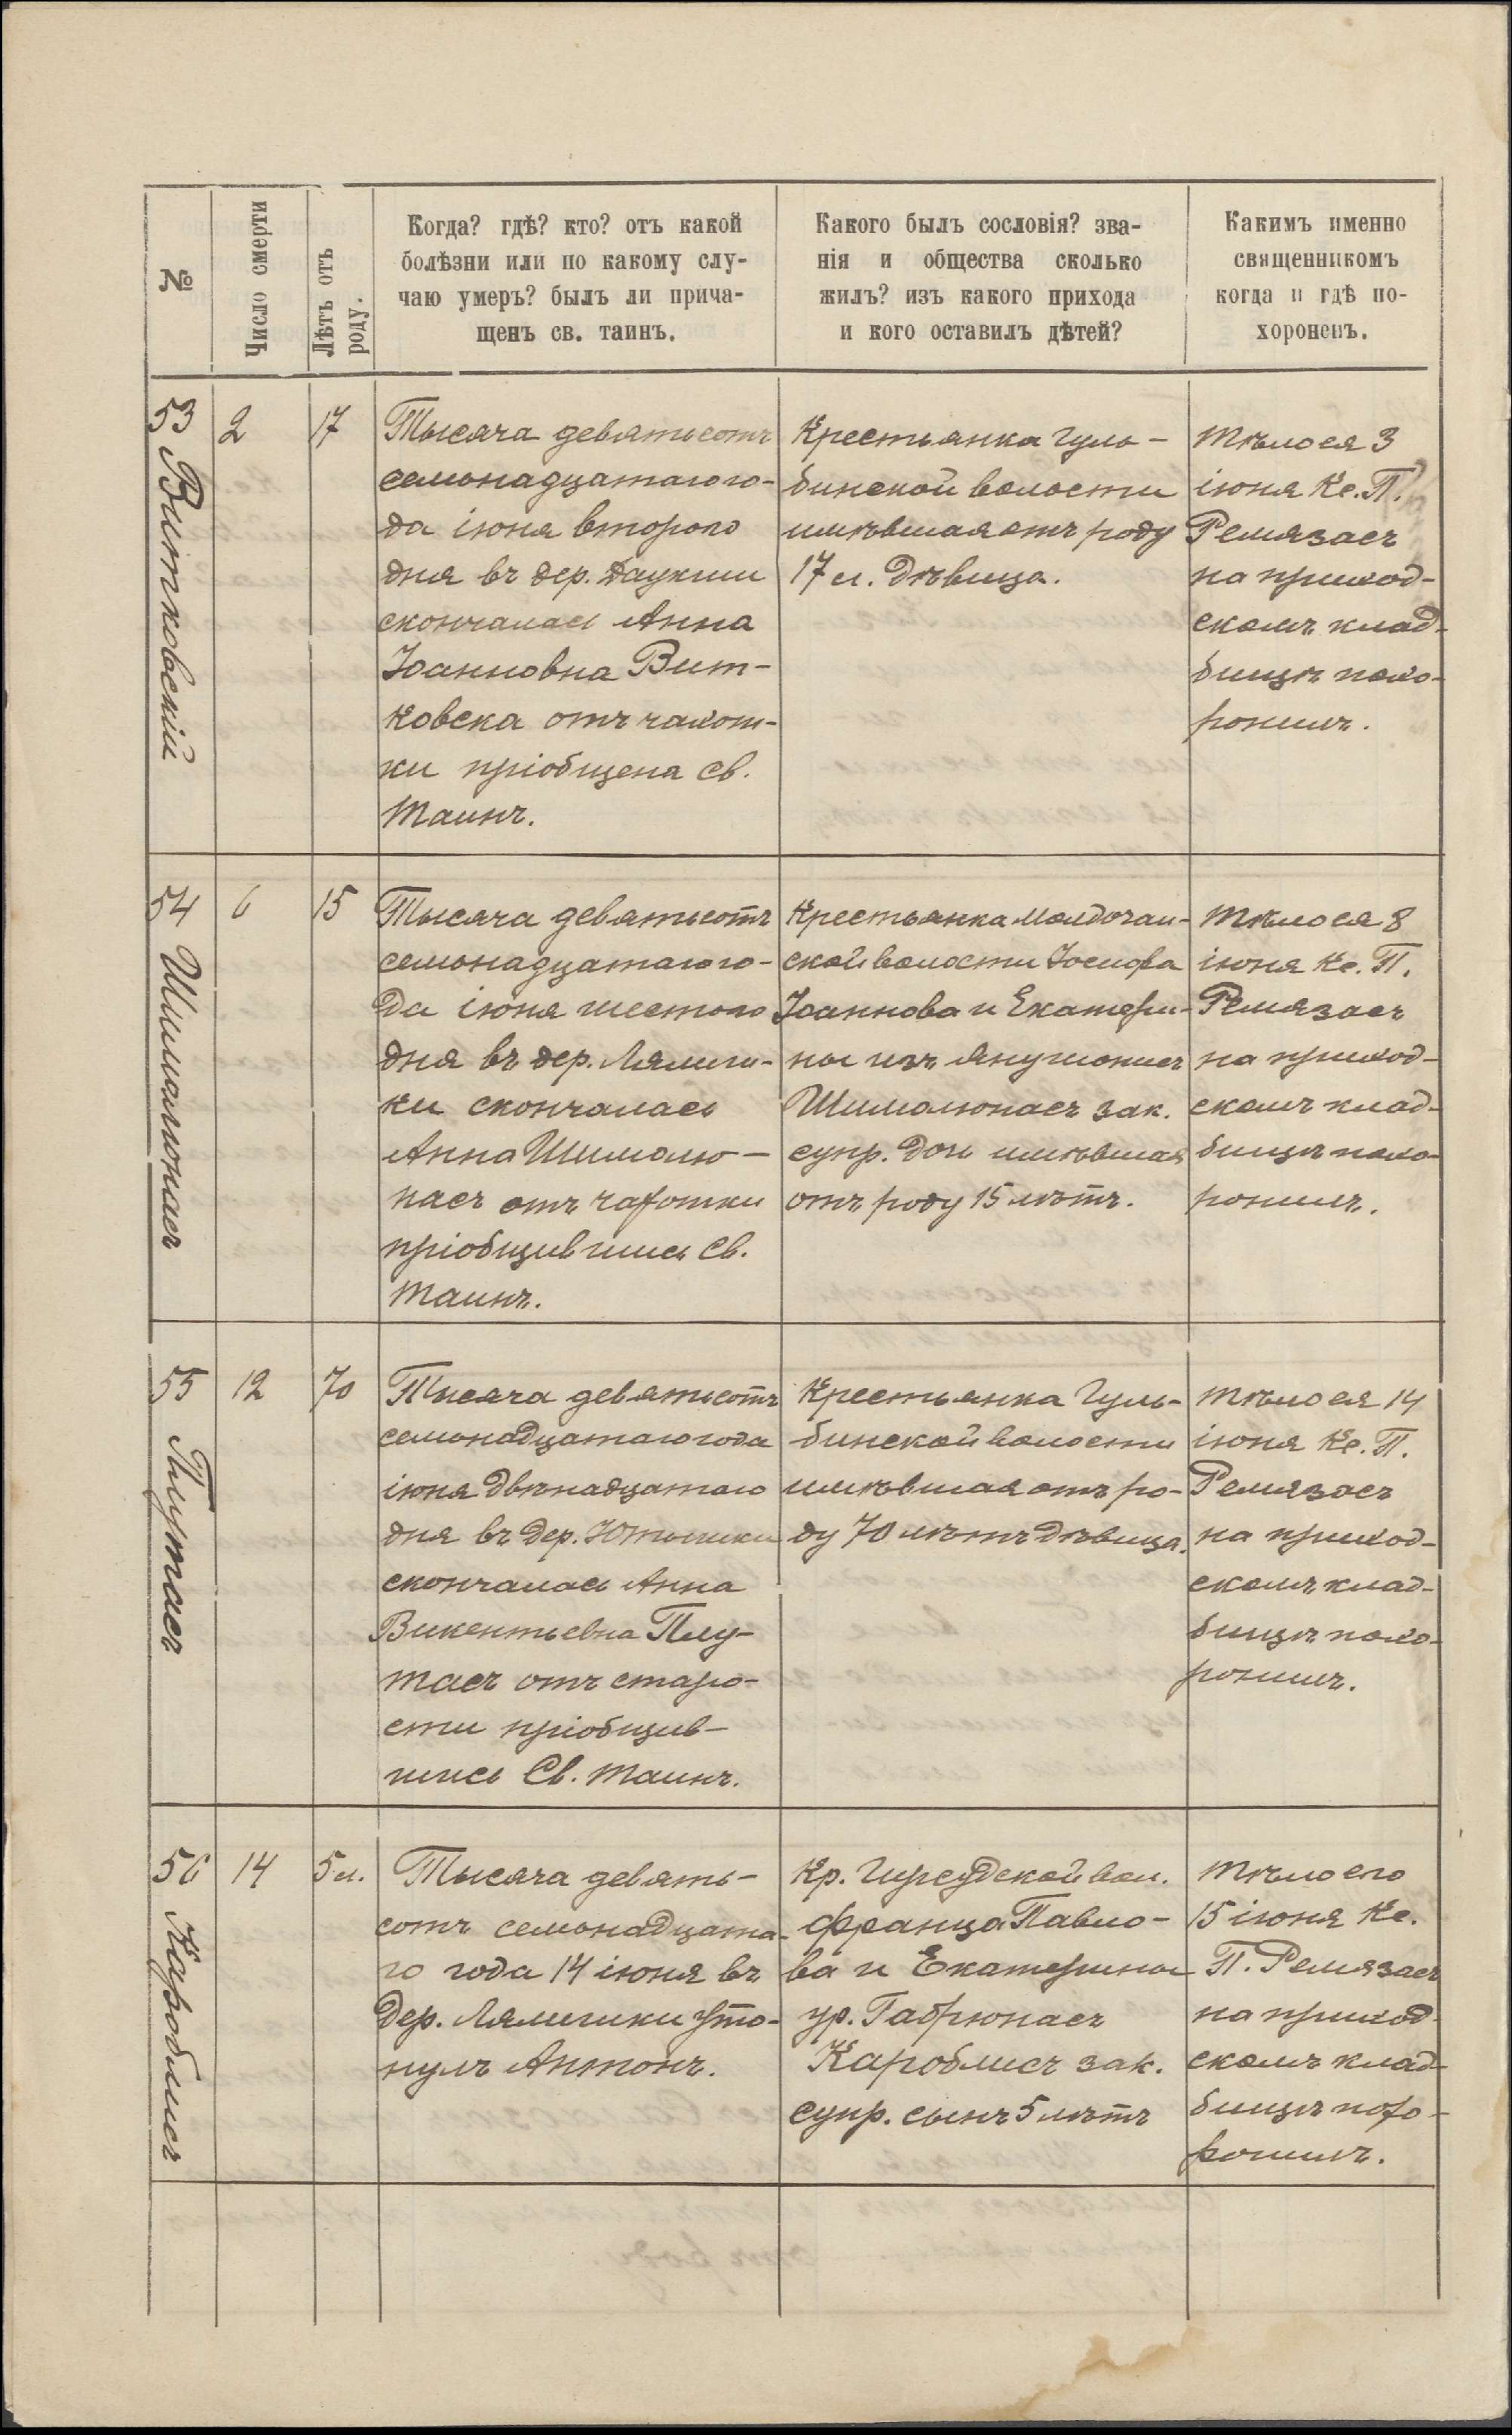 №
Число смерти
Лѣтъ отъ
роду.
Когда? гдѣ? кто? отъ какой
болѣзни или по какому слу-
чаю умеръ? былъ ли прича-
щенъ св. таинъ.
Какого былъ сословія? зва-
нія и общества сколько
жилъ? изъ какого прихода
и кого оставилъ дѣтей?
Какимъ именно
священникомъ
когда и гдѣ по-
хороненъ.
53 Витковскій
2
17
Тысяча девятьсотъ
семьнадцатаго го-
да іюня второго
дня въ дер. Даукши
скончалась Анна
Іоанновна Вит-
ковска отъ чахот-
ки пріобщена св.
Таинъ.
Крестьянка Гуль-
бинской волости
имѣвшая отъ роду
17 л. Дѣвица.
Тѣло ея 3
іюня Кс. П.
Ремязасъ
на приход-
скомъ клад-
бищѣ похо-
ронилъ.
54 Шимолюнасъ
6
15
Тысяча девятьсотъ
семьнадцатаго го-
да іюня шестого
дня въ дер. Лялиш-
ки скончалась
Анна Шимолю-
насъ отъ чахотки
пріобщившись Св.
Таинъ.
Крестьянка
ской волости Іосифа
Іоаннова и Екатери-
ны изъ Янушонисъ
Шимолюнасъ зак.
супр. дочь имѣвшая
отъ роду 15 лѣтъ.
Тѣло ея 8
іюня Кс. П.
Ремязасъ
на приход-
скомъ клад-
бищѣ похо-
ронилъ.
55 Плутасъ
12
70
Тысяча девятьсотъ
семьнадцатаго года
іюня двѣнадцатаго
дня въ дер.
скончалась Анна
Викентьевна Плу-
тасъ отъ старо-
сти пріобщив-
шись Св. Таинъ.
Крестьянка Гуль-
бинской волости
имѣвшая отъ ро-
ду 70 лѣтъ дѣвица.
Тѣло ея 14
іюня Кс. П.
Ремязасъ
на приход-
скомъ клад-
бищѣ похо-
ронилъ.
56 Кароблисъ
14
5 л.
Тысяча девять-
сотъ семьнадцата-
го года 14 іюня въ
дер. Лялишки уто-
нулъ Антонъ.
Кр. вол.
Франца Павло-
ва и Екатерины
ур. Габрюнасъ
Кароблисъ зак.
супр. сынъ 5 лѣтъ
Тѣло его
15 іюня Кс.
П. Ремязасъ
на приход-
скомъ клад-
бищѣ похо-
ронилъ.